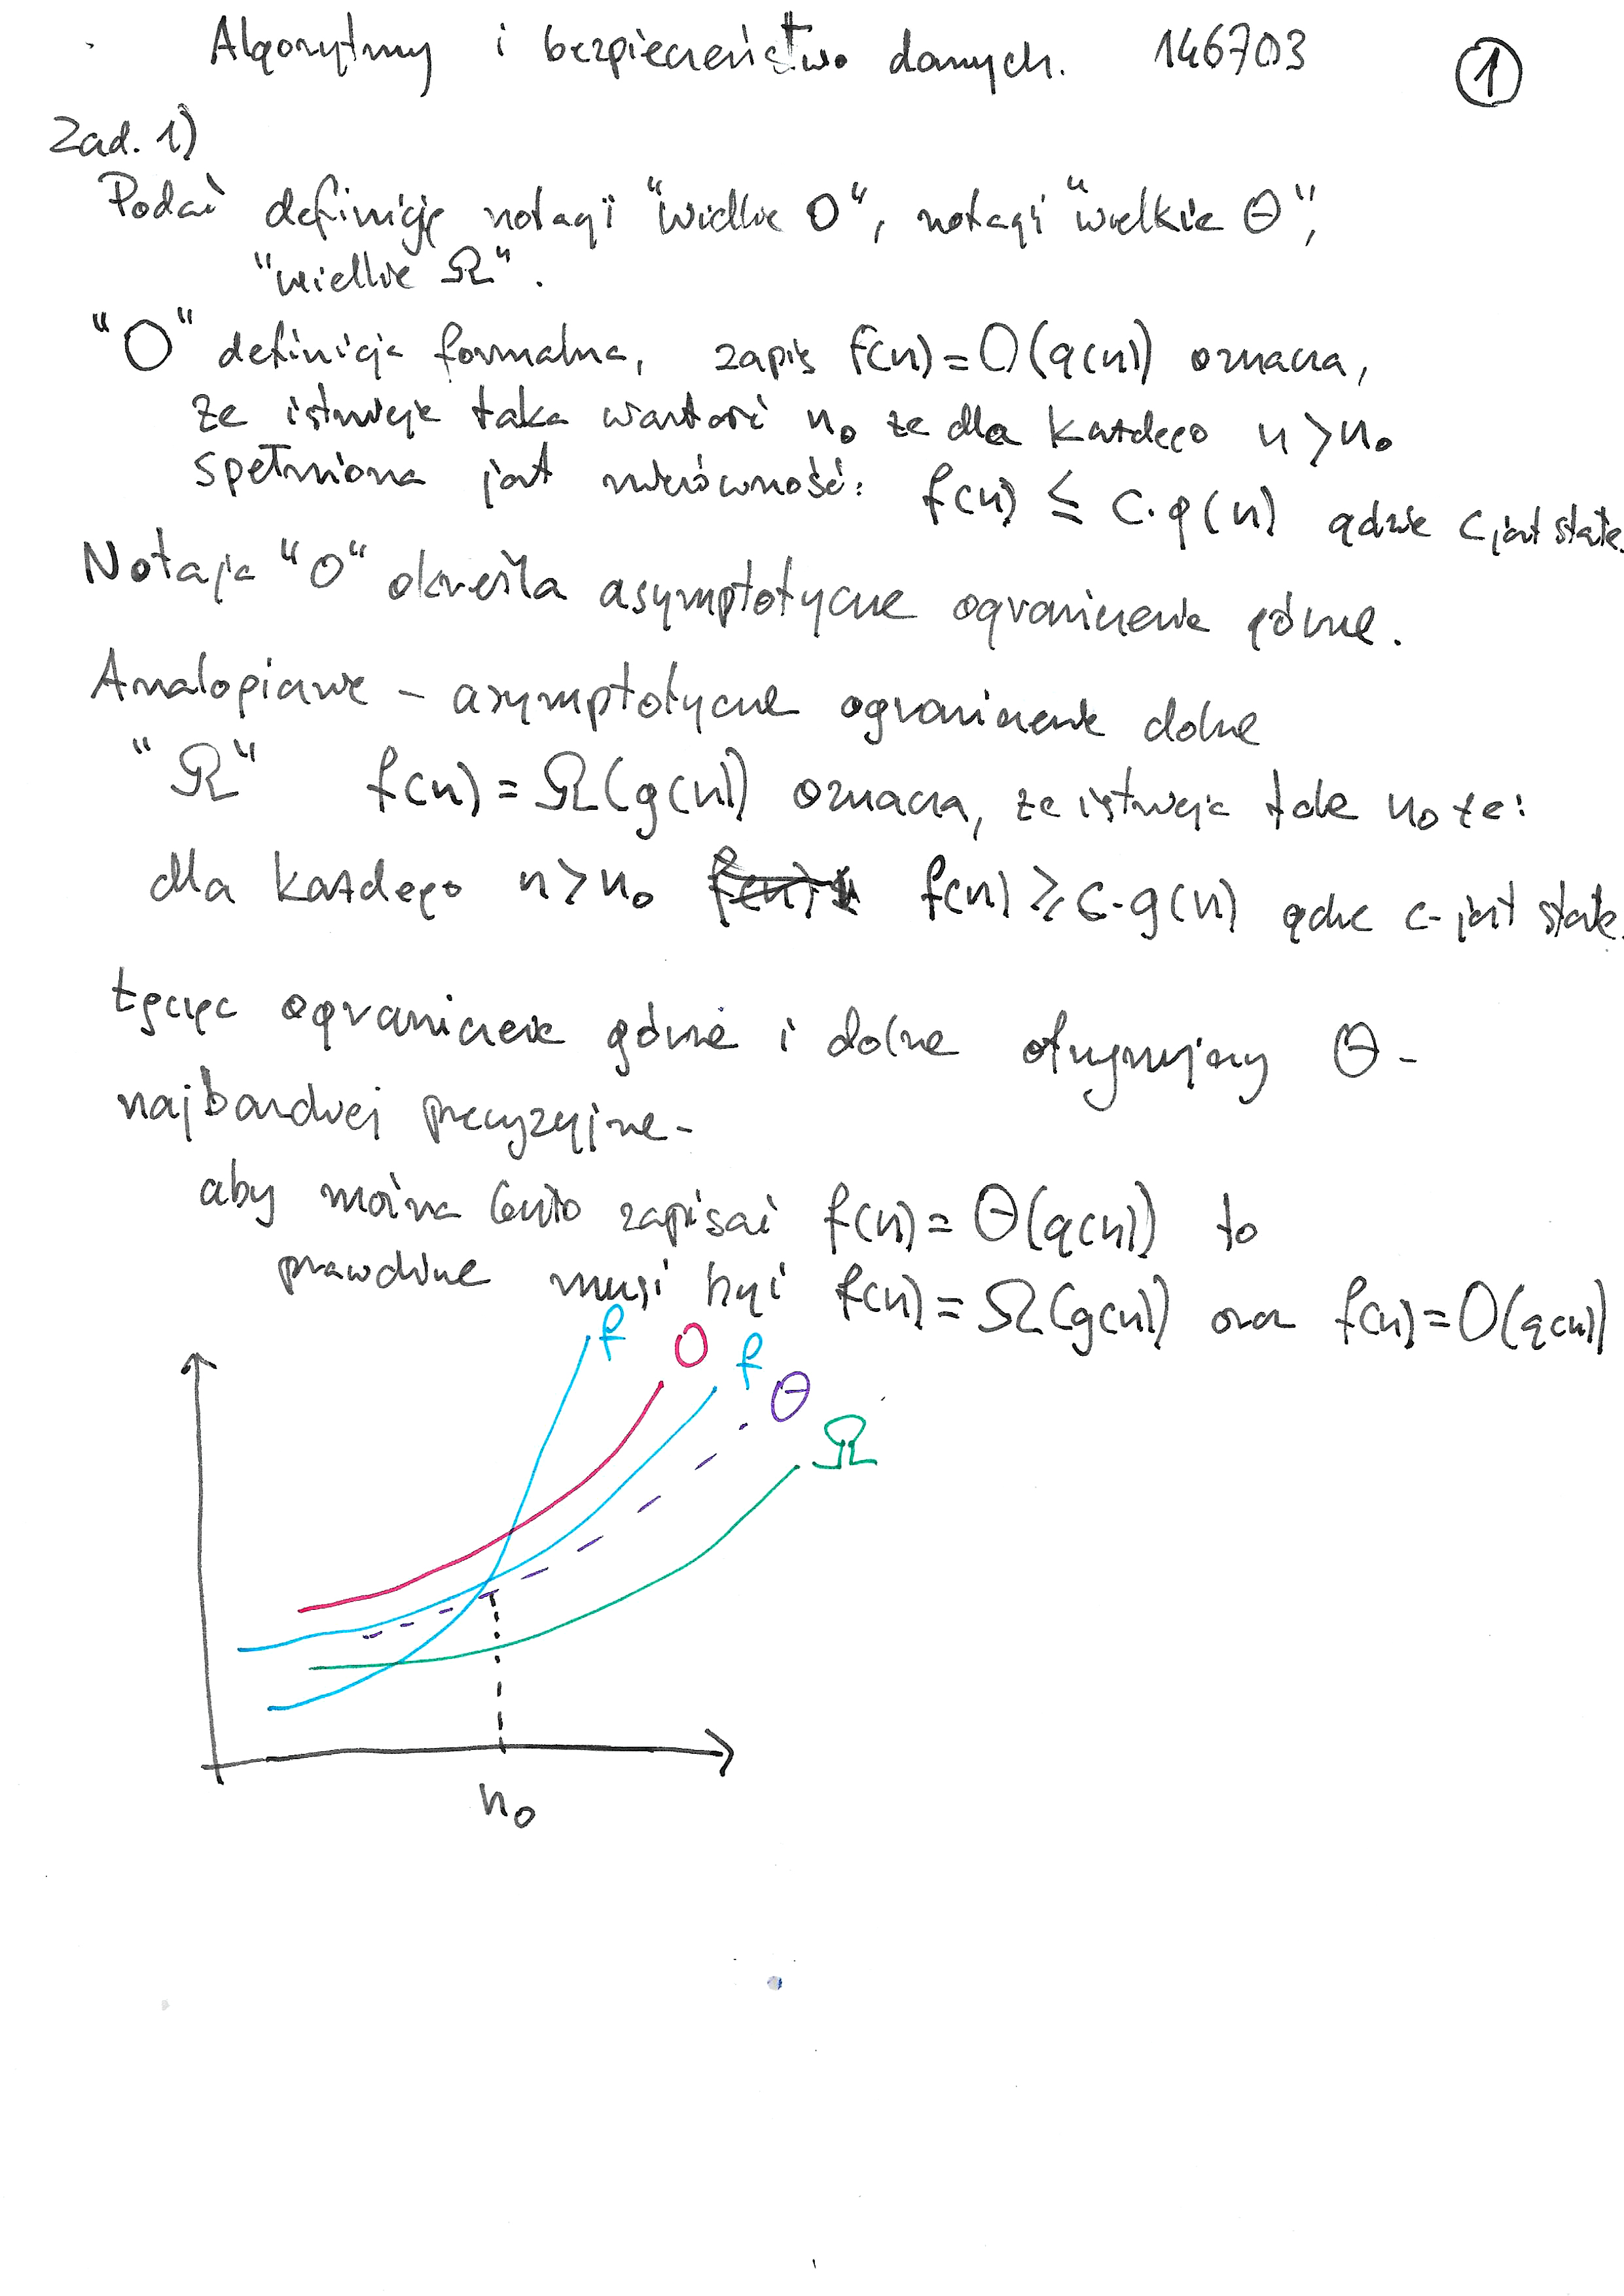 Algorytmy i bezpieczeństwo danych. 146703 1
Zad. 1)
Podać definicję notacji "wielkie O", notacji "wielkie Θ",
"wielkie Ω".
"O" definicja formalna, zapis f(n)=O(g(n)) oznacza,
że istnieje taka wartość n₀ że dla każdego n>n₀
spełniona jest nierówność: f(n) ≤ c·g(n) gdzie c jest stałe.
Notacja "O" określa asymptotyczne ograniczenie górne.
Analogicznie - asymptotyczne ograniczenie dolne
"Ω" f(n)=Ω(g(n)) oznacza, że istnieje takie n₀ że:
dla każdego n>n₀ f(n) ≥ c·g(n) gdzie c-jest stałe.
Łącząc ograniczenie górne i dolne otrzymujemy Θ-
najbardziej precyzyjne-
aby można było zapisać f(n)=Θ(g(n)) to
prawdziwe musi być f(n)=Ω(g(n)) oraz f(n)=O(g(n))
f O f Θ Ω
n₀